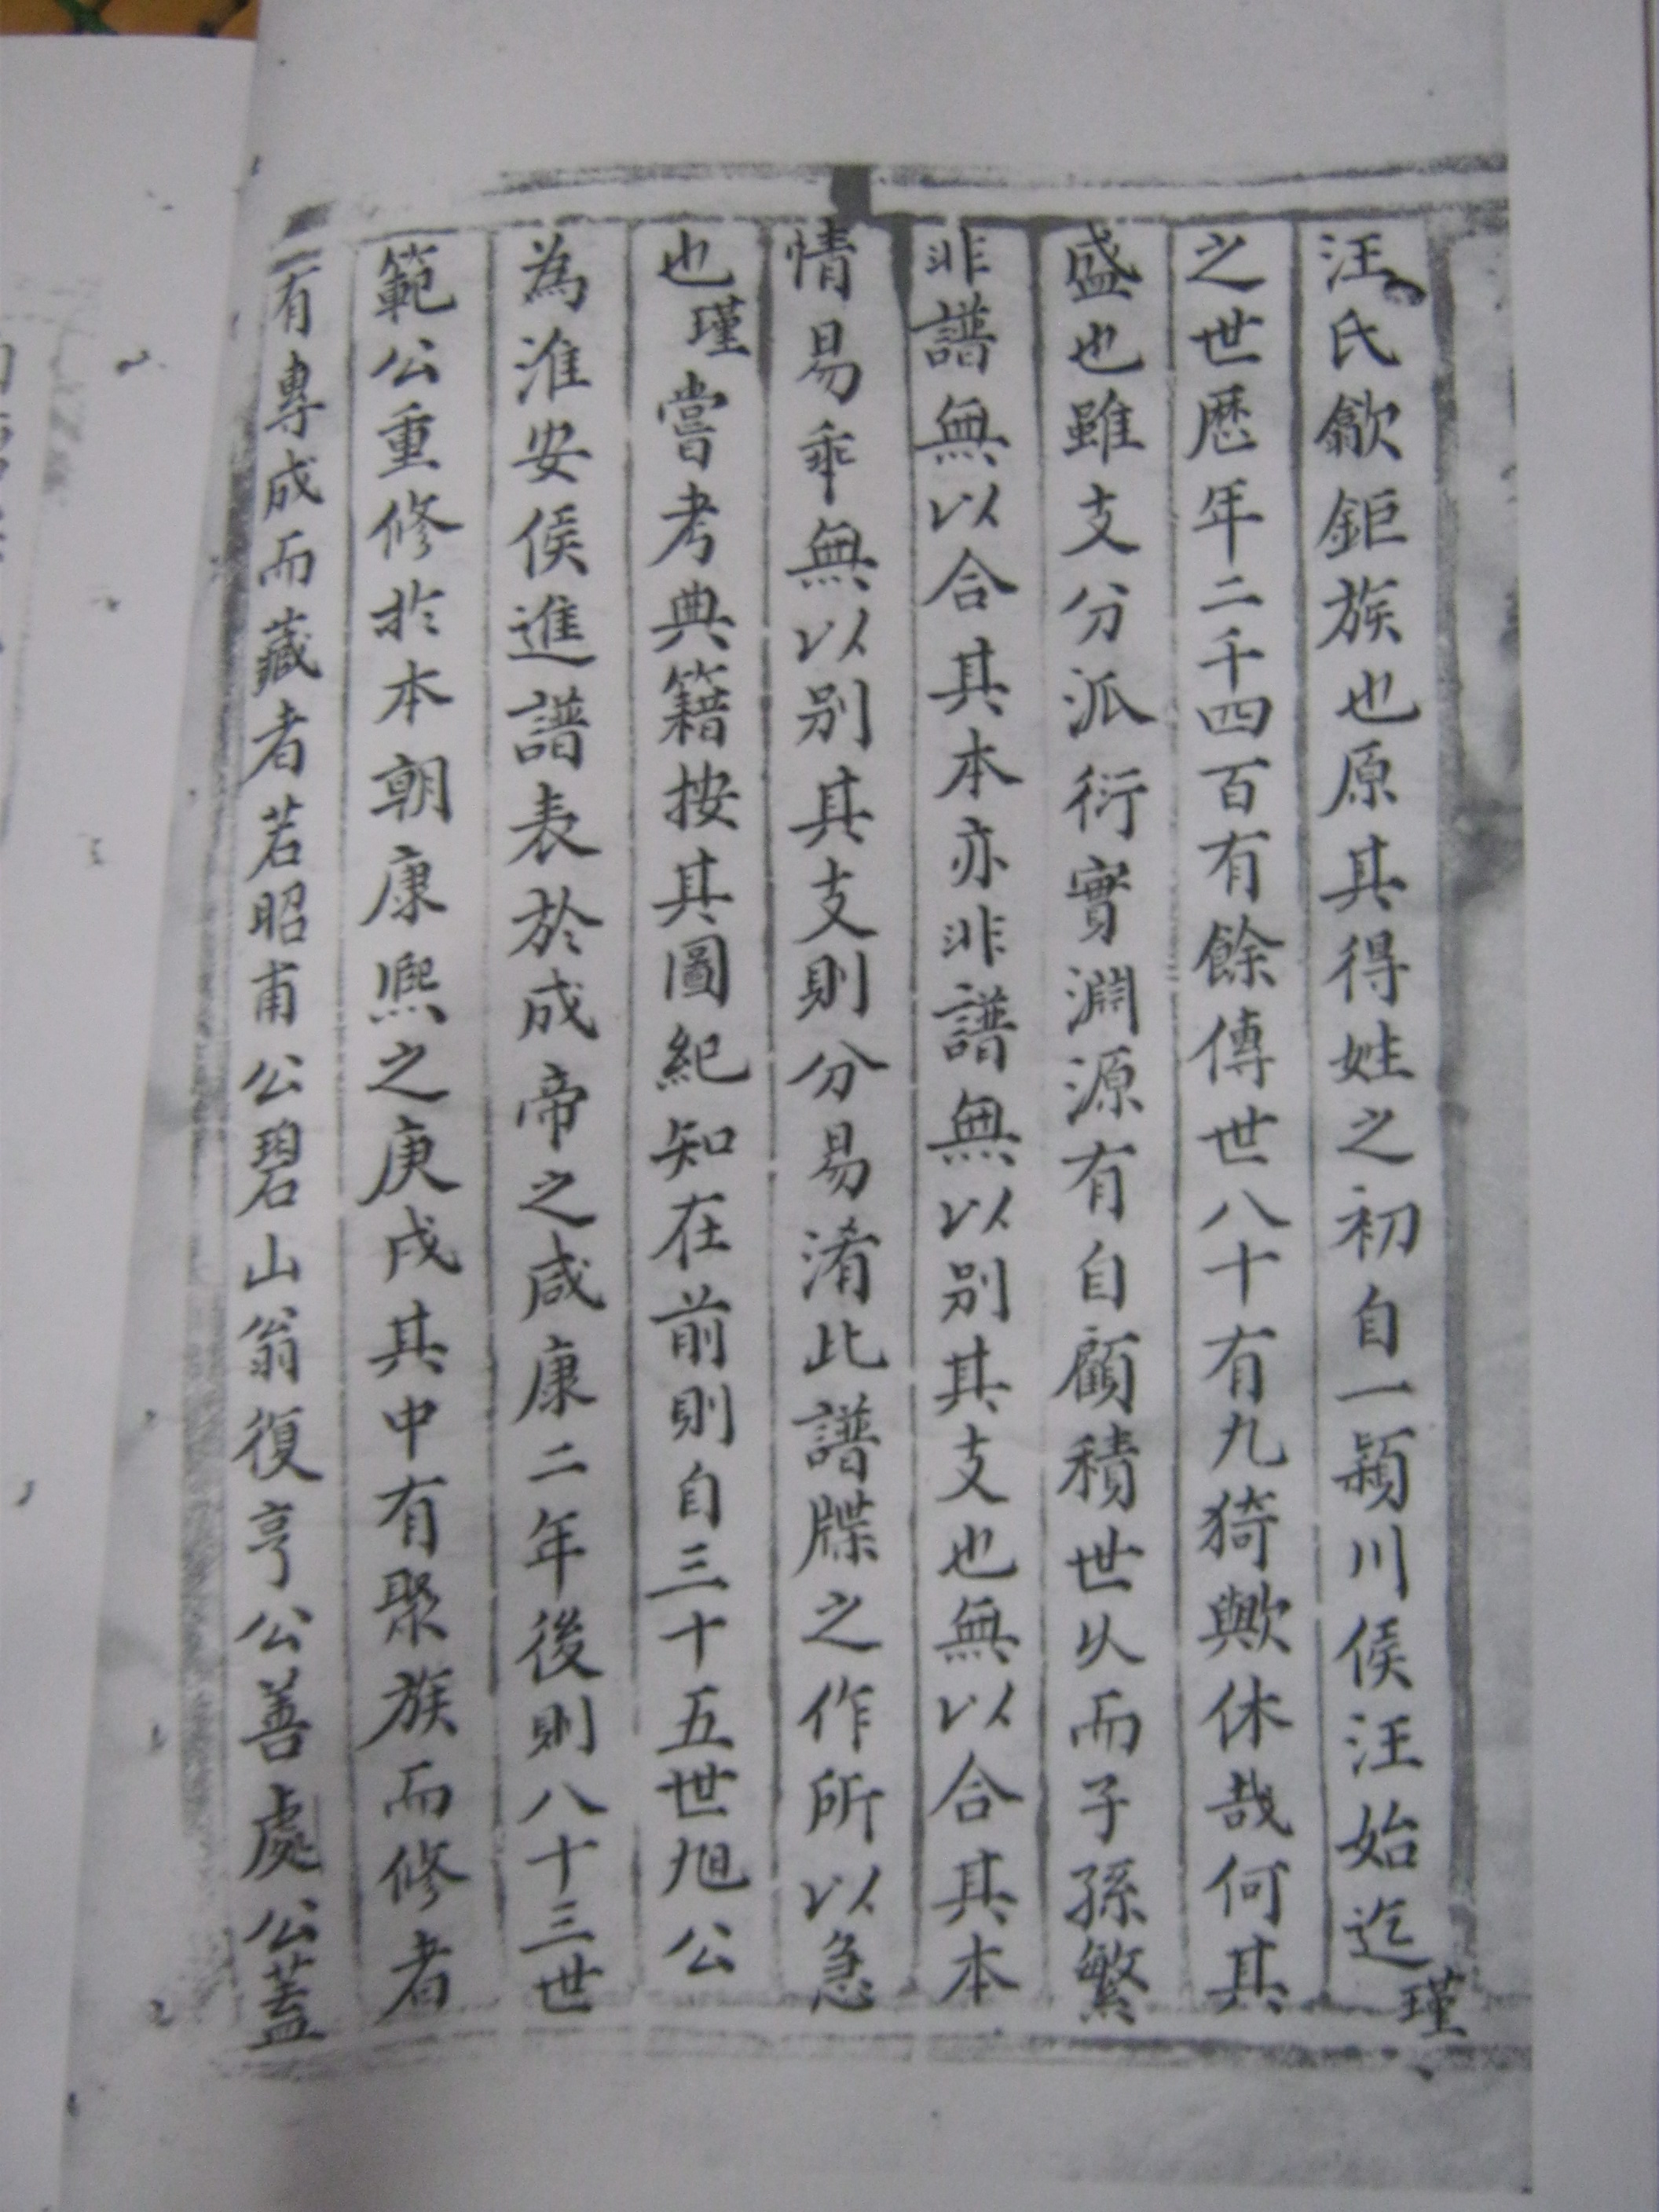 汪氏歙鉅族也原其得姓之初自一颍川侯汪始迄瑾
之世歷年二千四百有餘傳世八十有九猗歟休哉何其
盛也雖支分派衍實淵源有自顧積世以而子孫繁
非譜無以合其本亦非譜無以別其支也無以合其本
情易乖無以別其支則分易淆此譜牒之作所以急
也瑾嘗考典籍按其圖紀知在前則自三十五世旭公
為淮安侯進譜表於成帝之咸康二年後則八十三世
範公重修於本朝康熙之庚戌其中有聚族而修者
有專成而藏者若昭甫公碧山翁復亨公善處公蓋